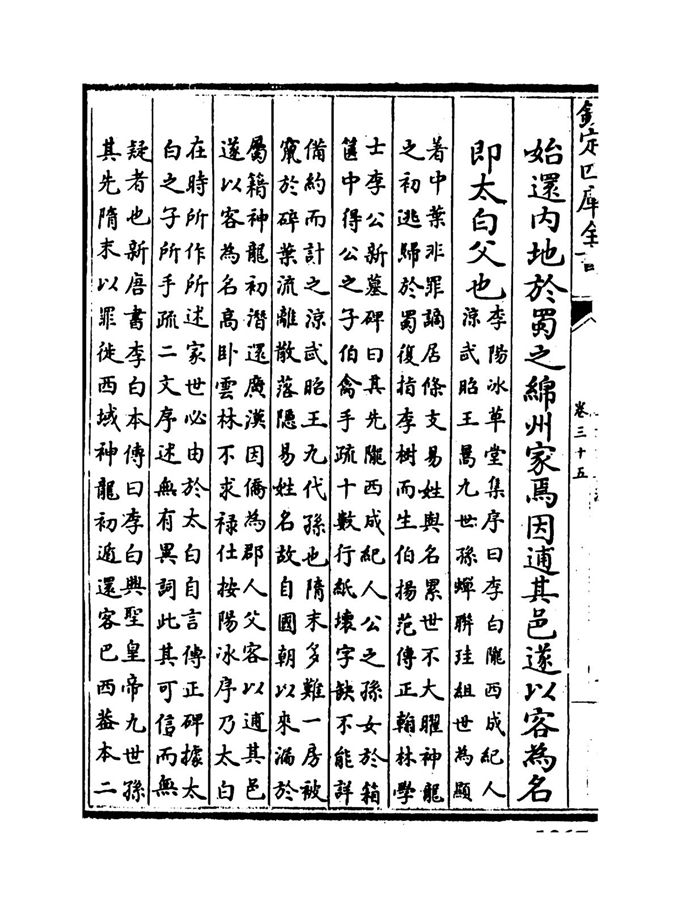 欽定四庫全書
卷三十五
始還内地於蜀之綿州家焉因逋其邑遂以客為名
即太白父也
李陽冰草堂集序曰李白隴西成紀人
涼武昭王暠九世孫蟬聯珪組世為顯
著中葉非罪謫居條支易姓與名累世不大曜神龍
之初逃歸於蜀復指李樹而生伯揚范傳正翰林學
士李公新墓碑曰其先隴西成紀人公之孫女於箱
篋中得公之子伯禽手疏十數行紙壞字缺不能詳
備約而計之涼武昭王九代孫也隋末多難一房被
竄於碎葉流離散落隱易姓名故自國朝以來漏於
屬籍神龍初潛還廣漢因僑為郡人父客以逋其邑
遂以客為名高卧雲林不求禄仕按陽冰序乃太白
在時所作所述家世必由於太白自言傳正碑據太
白之子所手疏二文序述無有異詞此其可信而無
疑者也新唐書李白本傳曰李白興聖皇帝九世孫
其先隋末以罪徙西域神龍初遁還客巴西葢本二